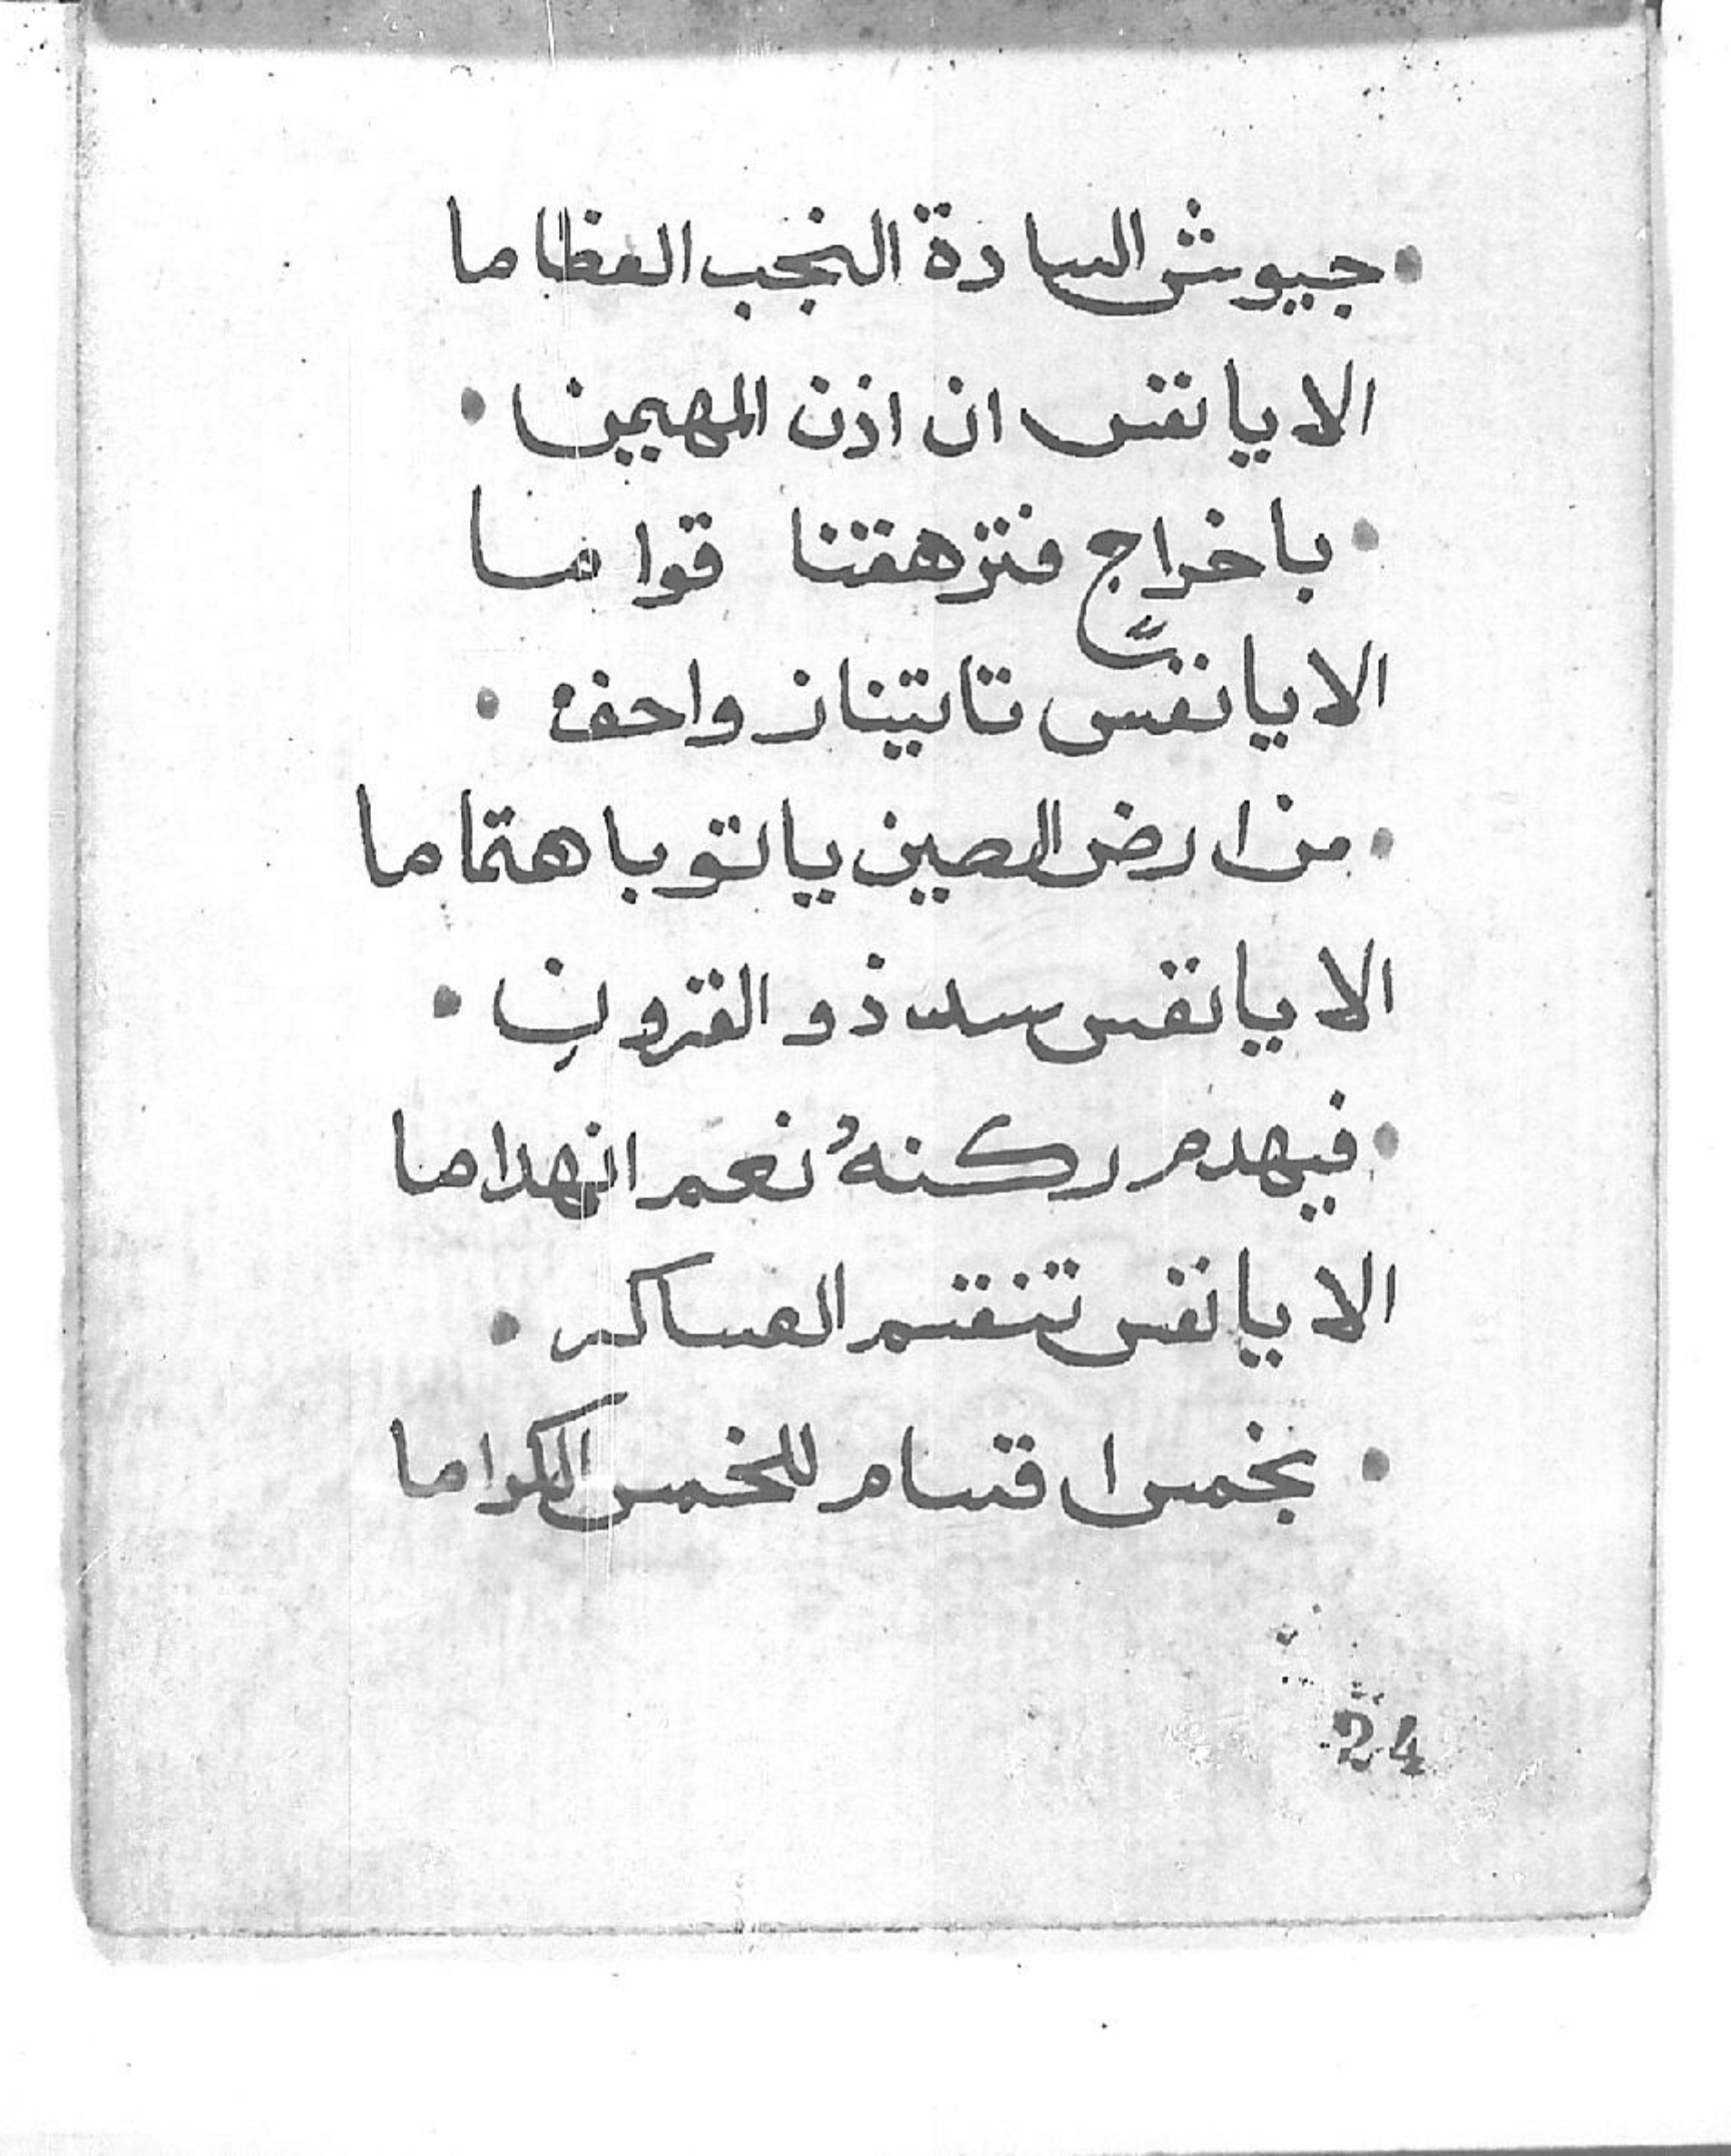 • جيوش السادة النجب العظاما
الا يا نفس ان اذن المهيمن •
• باخراج فتزهقنا قواما
الا يا نفسً تاتينا زواحف •
• من ارض الصين ياتو باهتماما
الا يا نفس سد ذو القرونِ •
• فيهدم ركنهُ نعم انهداما
الا يا نفس تنقسم العساكر •
• بخمس اقسام للخمس الكراما
24